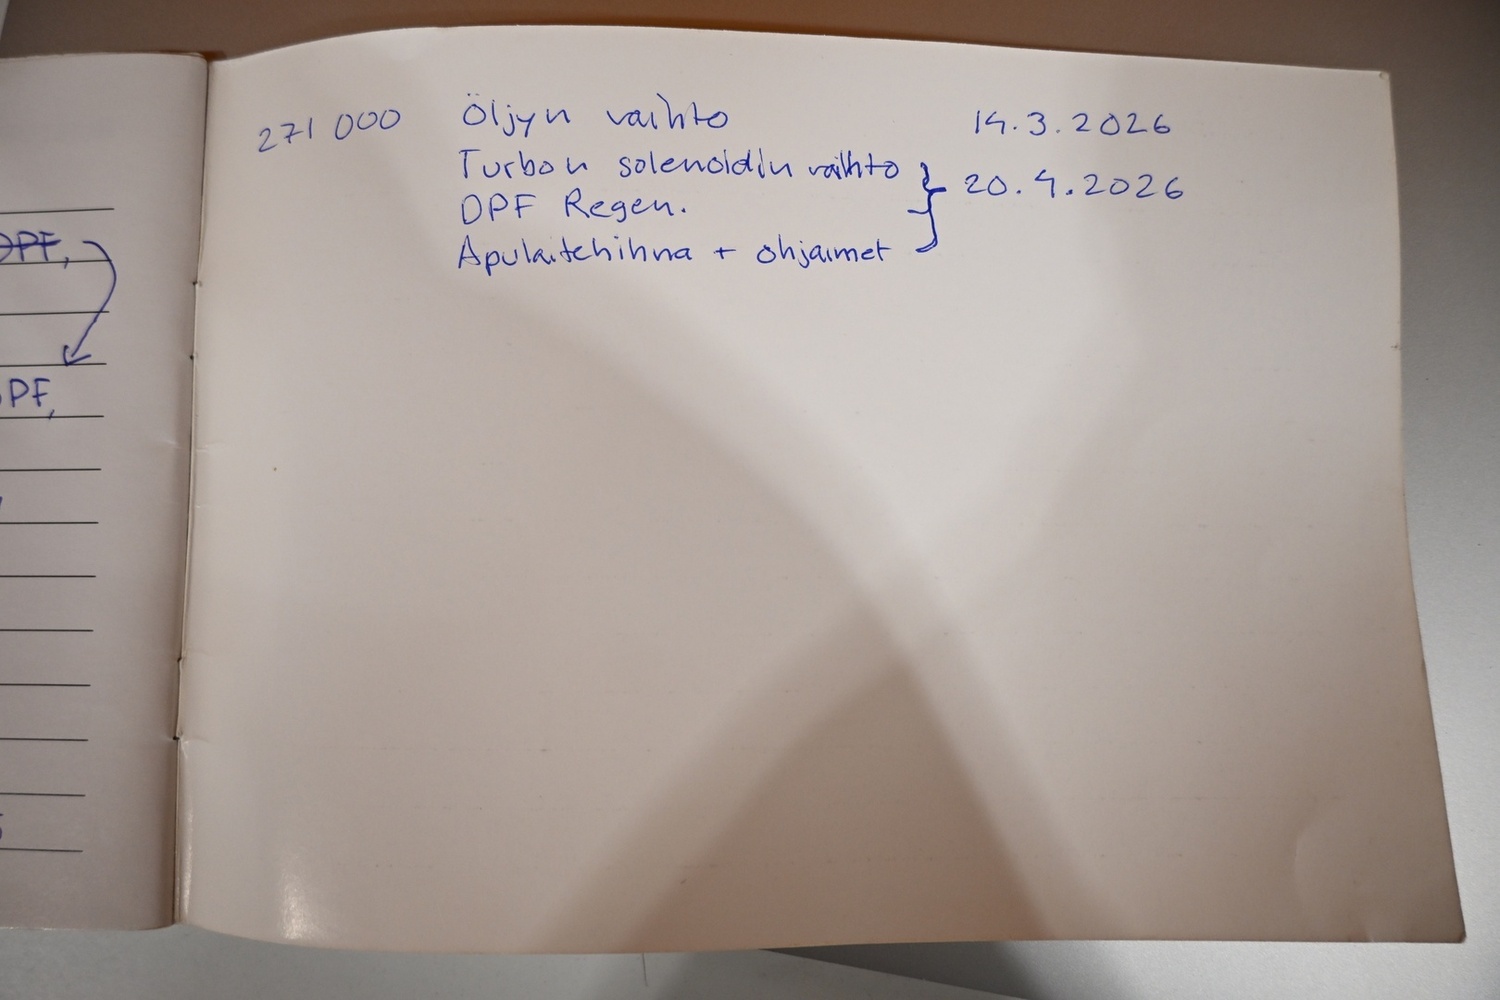 DPF,
PF,
271 000 Öljyn vaihto 14.3.2026
Turbon solenoidin vaihto
DPF Regen. 20.4.2026
Apulaitehihna + ohjaimet